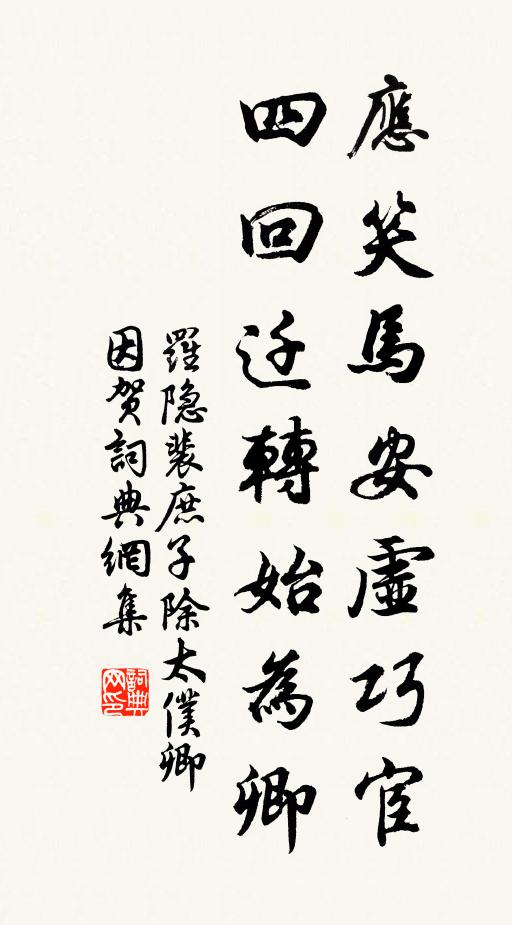 應笑馬安虛巧宦
四回迁轉始為卿
羅隐裴庶子除太僕卿
因贺詞典網集
詞典网印